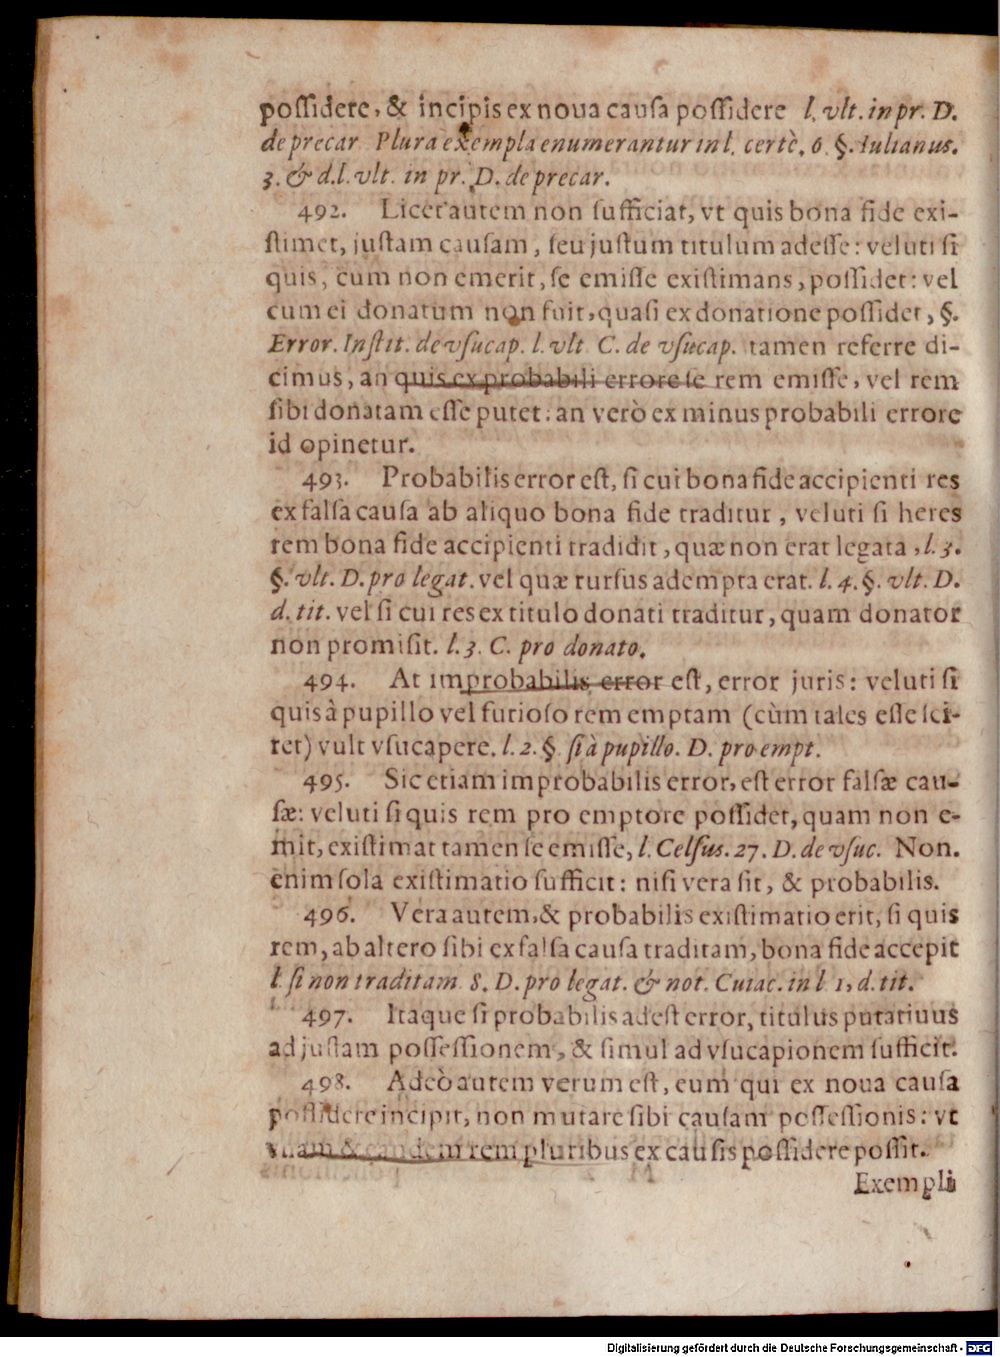 poſſidere, & incipis ex noua cauſa poſſidere l. vlt. in pr. D.
de precar. Plura exempla enumerantur in l. certè. 6. §. Iulianus.
3. & d. l. vlt. in pr. D. de precar.
492. Licet autem non ſufficiat, vt quis bona fide exi-
ſtimet, juſtam cauſam, ſeu juſtum titulum adeſſe: veluti ſi
quis, cum non emerit, ſe emiſſe exiſtimans, poſſidet: vel
cum ei donatum non fuit, quaſi ex donatione poſſidet, §.
Error. Inſtit. de vſucap. l. vlt. C. de vſucap. tamen referre di-
cimus, an quis ex probabili errore ſe rem emiſſe, vel rem
ſibi donatam eſſe putet: an verò ex minus probabili errore
id opinetur.
493. Probabilis error eſt, ſi cui bona fide accipienti res
ex falſa cauſa ab aliquo bona fide traditur, veluti ſi heres
rem bona fide accipienti tradidit, quæ non erat legata, l. 3.
§. vlt. D. pro legat. vel quæ rurſus adempta erat. l. 4. §. vlt. D.
d. tit. vel ſi cui res ex titulo donati traditur, quam donator
non promiſit. l. 3. C. pro donato.
494. At improbabilis error eſt, error juris: veluti ſi
quis à pupillo vel furioſo rem emptam (cùm tales eſſe ſci-
ret) vult vſucapere. l. 2. §. ſi à pupillo. D. pro empt.
495. Sic etiam improbabilis error, eſt error falſæ cau-
ſæ: veluti ſi quis rem pro emptore poſſidet, quam non e-
mit, exiſtimat tamen ſe emiſſe, l. Celſus. 27. D. de vſuc. Non.
enim ſola exiſtimatio ſufficit: niſi vera ſit, & probabilis.
496. Vera autem, & probabilis exiſtimatio erit, ſi quis
rem, ab altero ſibi ex falſa cauſa traditam, bona fide accepit
l. ſi non traditam. 8. D. pro legat. & not. Cuiac. in l. 1, d. tit.
497. Itaque ſi probabilis adeſt error, titulus putatiuus
ad juſtam poſſeſſionem, & ſimul ad vſucapionem ſufficit.
498. Adeò autem verum eſt, eum qui ex noua cauſa
poſſidere incipit, non mutare ſibi cauſam poſſeſſionis: vt
vnam & eandem rem pluribus ex cauſis poſſidere poſſit.
Exempli
Digitalisierung gefördert durch die Deutsche Forschungsgemeinschaft - DFG